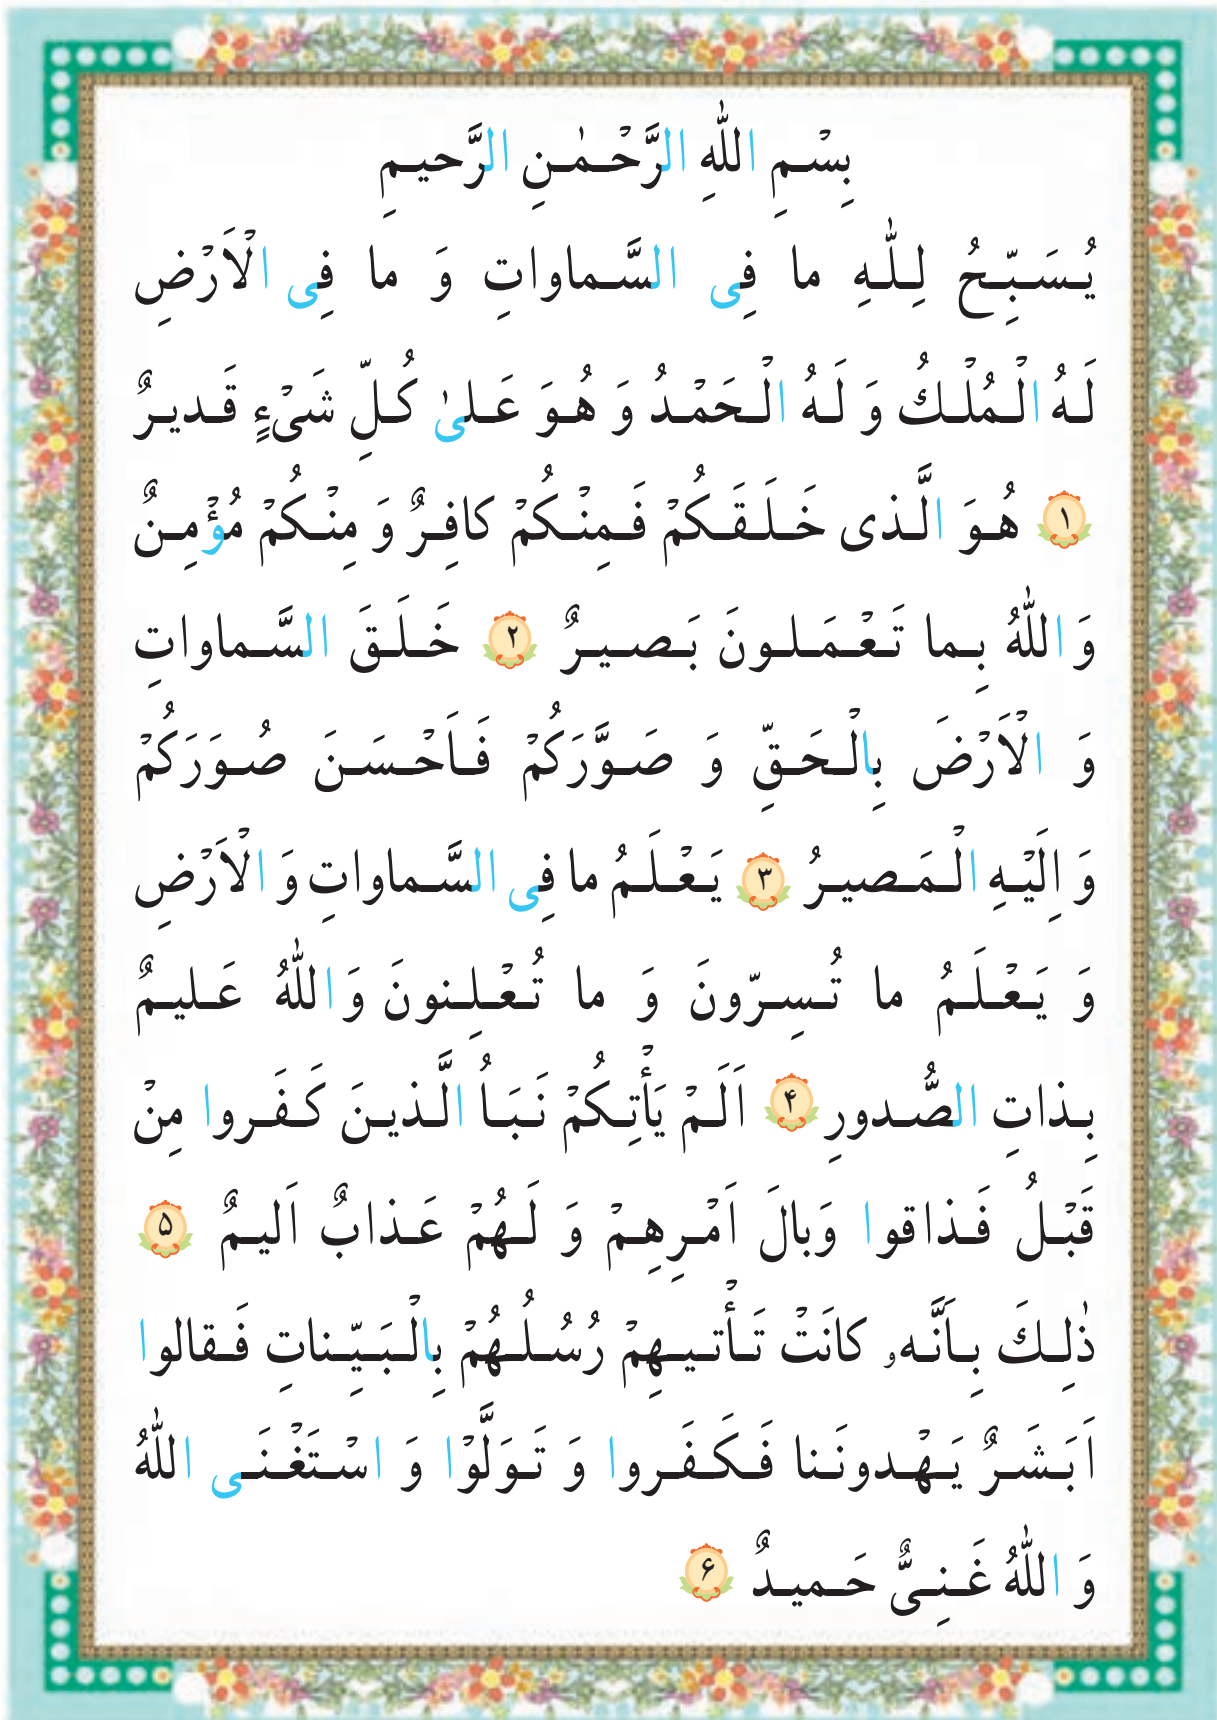 بِسْمِ اللّٰهِ الرَّحْمٰنِ الرَّحيمِ
يُسَبِّحُ لِلّٰهِ ما فِی السَّماواتِ وَ ما فِی الْاَرْضِ
لَهُ الْمُلْكُ وَ لَهُ الْحَمْدُ وَ هُوَ عَلیٰ كُلِّ شَیْءٍ قَديرٌ
۱ هُوَ الَّذی خَلَقَكُمْ فَمِنْكُمْ كافِرٌ وَ مِنْكُمْ مُؤْمِنٌ
وَ اللّٰهُ بِما تَعْمَلونَ بَصيرٌ ۲ خَلَقَ السَّماواتِ
وَ الْاَرْضَ بِالْحَقِّ وَ صَوَّرَكُمْ فَاَحْسَنَ صُوَرَكُمْ
وَ اِلَيْهِ الْمَصيرُ ۳ يَعْلَمُ ما فِی السَّماواتِ وَ الْاَرْضِ
وَ يَعْلَمُ ما تُسِرّونَ وَ ما تُعْلِنونَ وَ اللّٰهُ عَليمٌ
بِذاتِ الصُّدورِ ۴ اَلَمْ يَأْتِكُمْ نَبَأُ الَّذينَ كَفَروا مِنْ
قَبْلُ فَذاقوا وَبالَ اَمْرِهِمْ وَ لَهُمْ عَذابٌ اَليمٌ ۵
ذٰلِكَ بِاَنَّهو كانَتْ تَأْتيهِمْ رُسُلُهُمْ بِالْبَيِّناتِ فَقالوا
اَبَشَرٌ يَهْدونَنا فَكَفَروا وَ تَوَلَّوْا وَ اسْتَغْنَی اللّٰهُ
وَ اللّٰهُ غَنِیٌّ حَميدٌ ۶